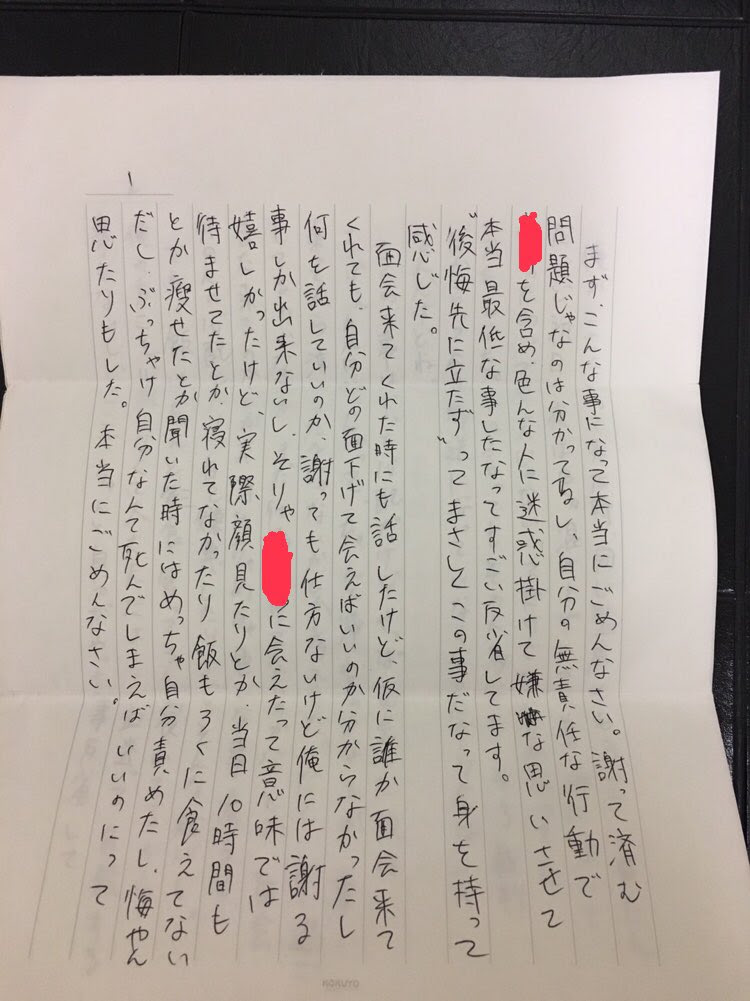 まず、こんな事になって本当にごめんなさい。謝って済む
問題じゃなのは分かってるし、自分の無責任な行動で
を含め、色んな人に迷惑掛けて嫌な思いさせて
本当最低な事したなってすごい反省してます。
"後悔先に立たず"ってまさしくこの事だなって身を持って
感じた。
面会来てくれた時にも話したけど、仮に誰か面会来て
くれても、自分どの面下げて会えばいいのか分からなかったし
何を話していいのか、謝っても仕方ないけど俺には謝る
事しか出来ないし、そりゃ に会えたって意味では
嬉しかったけど、実際顔見たりとか、当日10時間も
待ませてたとか、寝れてなかったり飯もろくに食えてない
とか痩せたとか聞いた時にはめっちゃ自分責めたし、悔やん
だし、ぶっちゃけ自分なんて死んでしまえばいいのにって
思たりもした。本当にごめんなさい。
1
KOKUYO